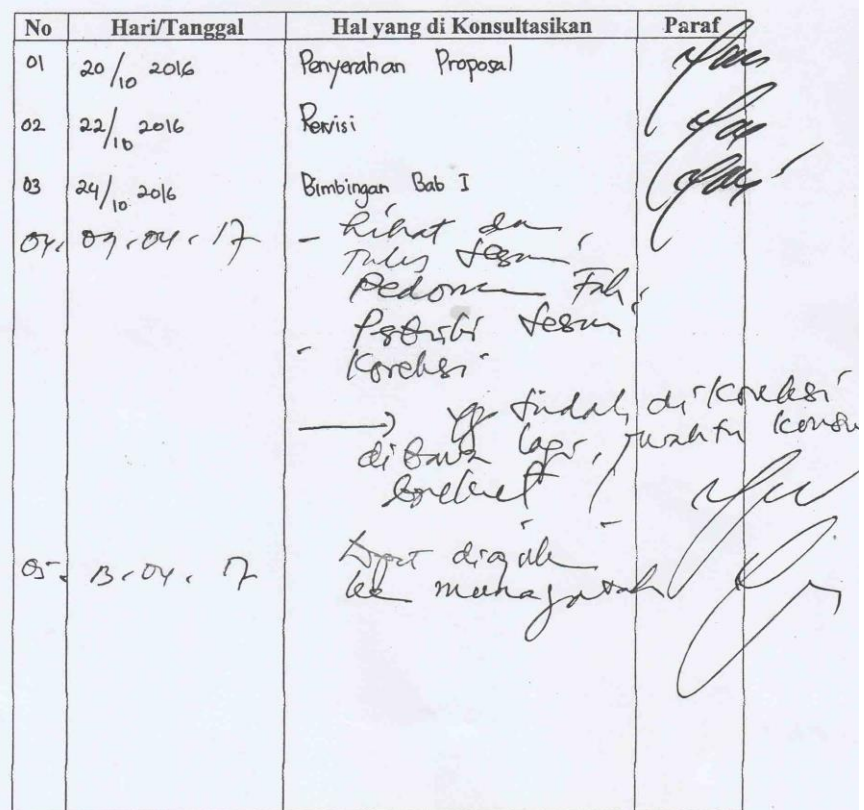 No Hari/Tanggal Hal yang di Konsultasikan Paraf
01 20/10 2016 Penyerahan Proposal
02 22/10 2016 Revisi
03 24/10 2016 Bimbingan Bab I
04. 04.17 - Lihat dan
Tulis sesuai
Pedoman Fak.
- sesuai
Koreksi
→ yg sudah di koreksi
di bawa lagi,
05. 13.04.17 Dapat diajukan
ke munaqasah